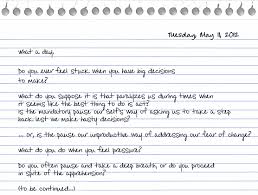 Tuesday, May 11, 2012
What a day.
Do you ever feel stuck when you have big decisions
to make?
What do you suppose it is that paralyzes us during times when
it seems like the best thing to do is act?
Is the mandatory pause our Self's way of asking us to take a step
back lest we make hasty decisions?
... or, is the pause our unproductive way of addressing our fear of change?
What do you do when you feel pressure?
Do you often pause and take a deep breath, or do you proceed
in spite of the apprehension?
(to be continued...)